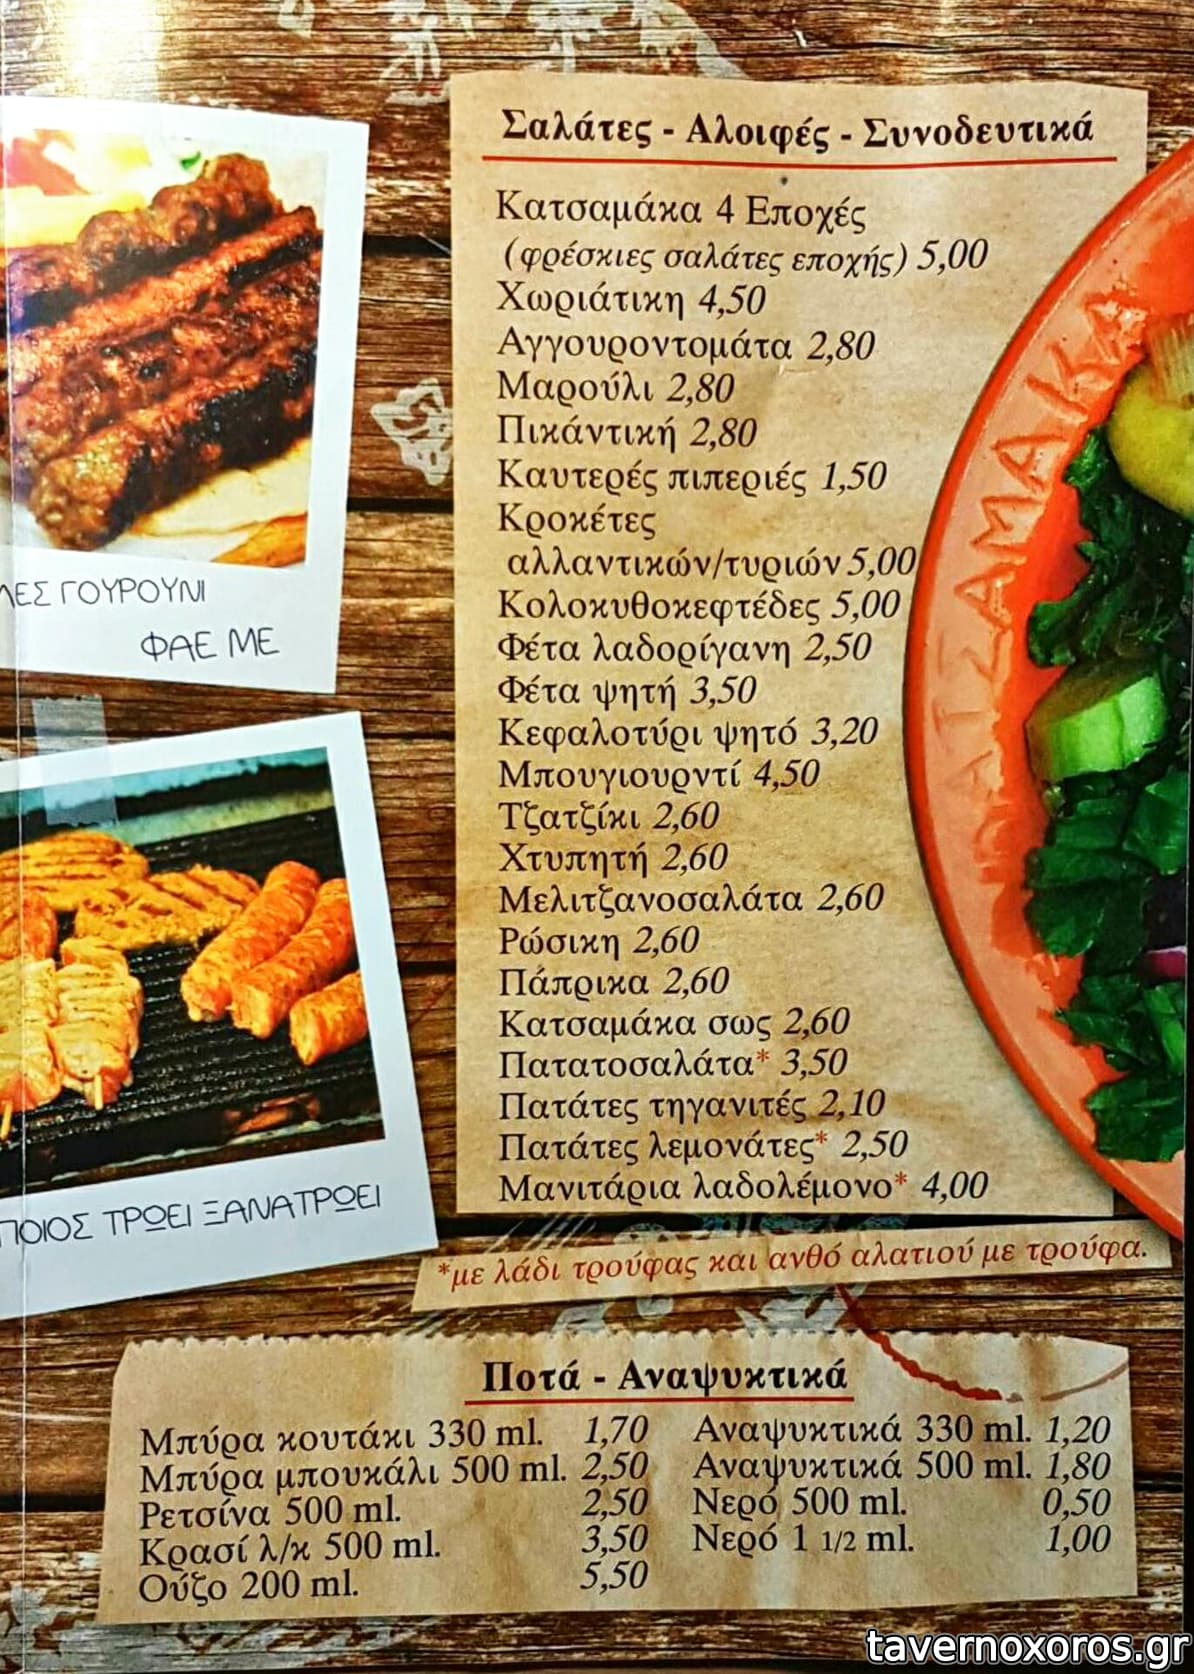 Σαλάτες - Αλοιφές - Συνοδευτικά
Κατσαμάκα 4 Εποχές
(φρέσκιες σαλάτες εποχής) 5,00
Χωριάτικη 4,50
Αγγουροντομάτα 2,80
Μαρούλι 2,80
Πικάντική 2,80
Καυτερές πιπεριές 1,50
Κροκέτες
αλλαντικών/τυριών 5,00
Κολοκυθοκεφτέδες 5,00
Φέτα λαδορίγανη 2,50
Φέτα ψητή 3,50
Κεφαλοτύρι ψητό 3,20
Μπουγιουρντί 4,50
Τζατζίκι 2,60
Χτυπητή 2,60
Μελιτζανοσαλάτα 2,60
Ρώσικη 2,60
Πάπρικα 2,60
Κατσαμάκα σως 2,60
Πατατοσαλάτα* 3,50
Πατάτες τηγανιτές 2,10
Πατάτες λεμονάτες* 2,50
Μανιτάρια λαδολέμονο* 4,00
*με λάδι τρούφας και ανθό αλατιού με τρούφα.
ΓΟΥΡΟΥΝΙ
ΦΑΕ ΜΕ
ΠΟΙΟΣ ΤΡΩΕΙ ΞΑΝΑΤΡΩΕΙ
ΚΑΤΣΑΜΑΚΑ
Ποτά - Αναψυκτικά
Μπύρα κουτάκι 330 ml. 1,70
Μπύρα μπουκάλι 500 ml. 2,50
Ρετσίνα 500 ml. 2,50
Κρασί λ/κ 500 ml. 3,50
Ούζο 200 ml. 5,50
Αναψυκτικά 330 ml. 1,20
Αναψυκτικά 500 ml. 1,80
Νερό 500 ml. 0,50
Νερό 1 1/2 ml. 1,00
tavernoxoros.gr